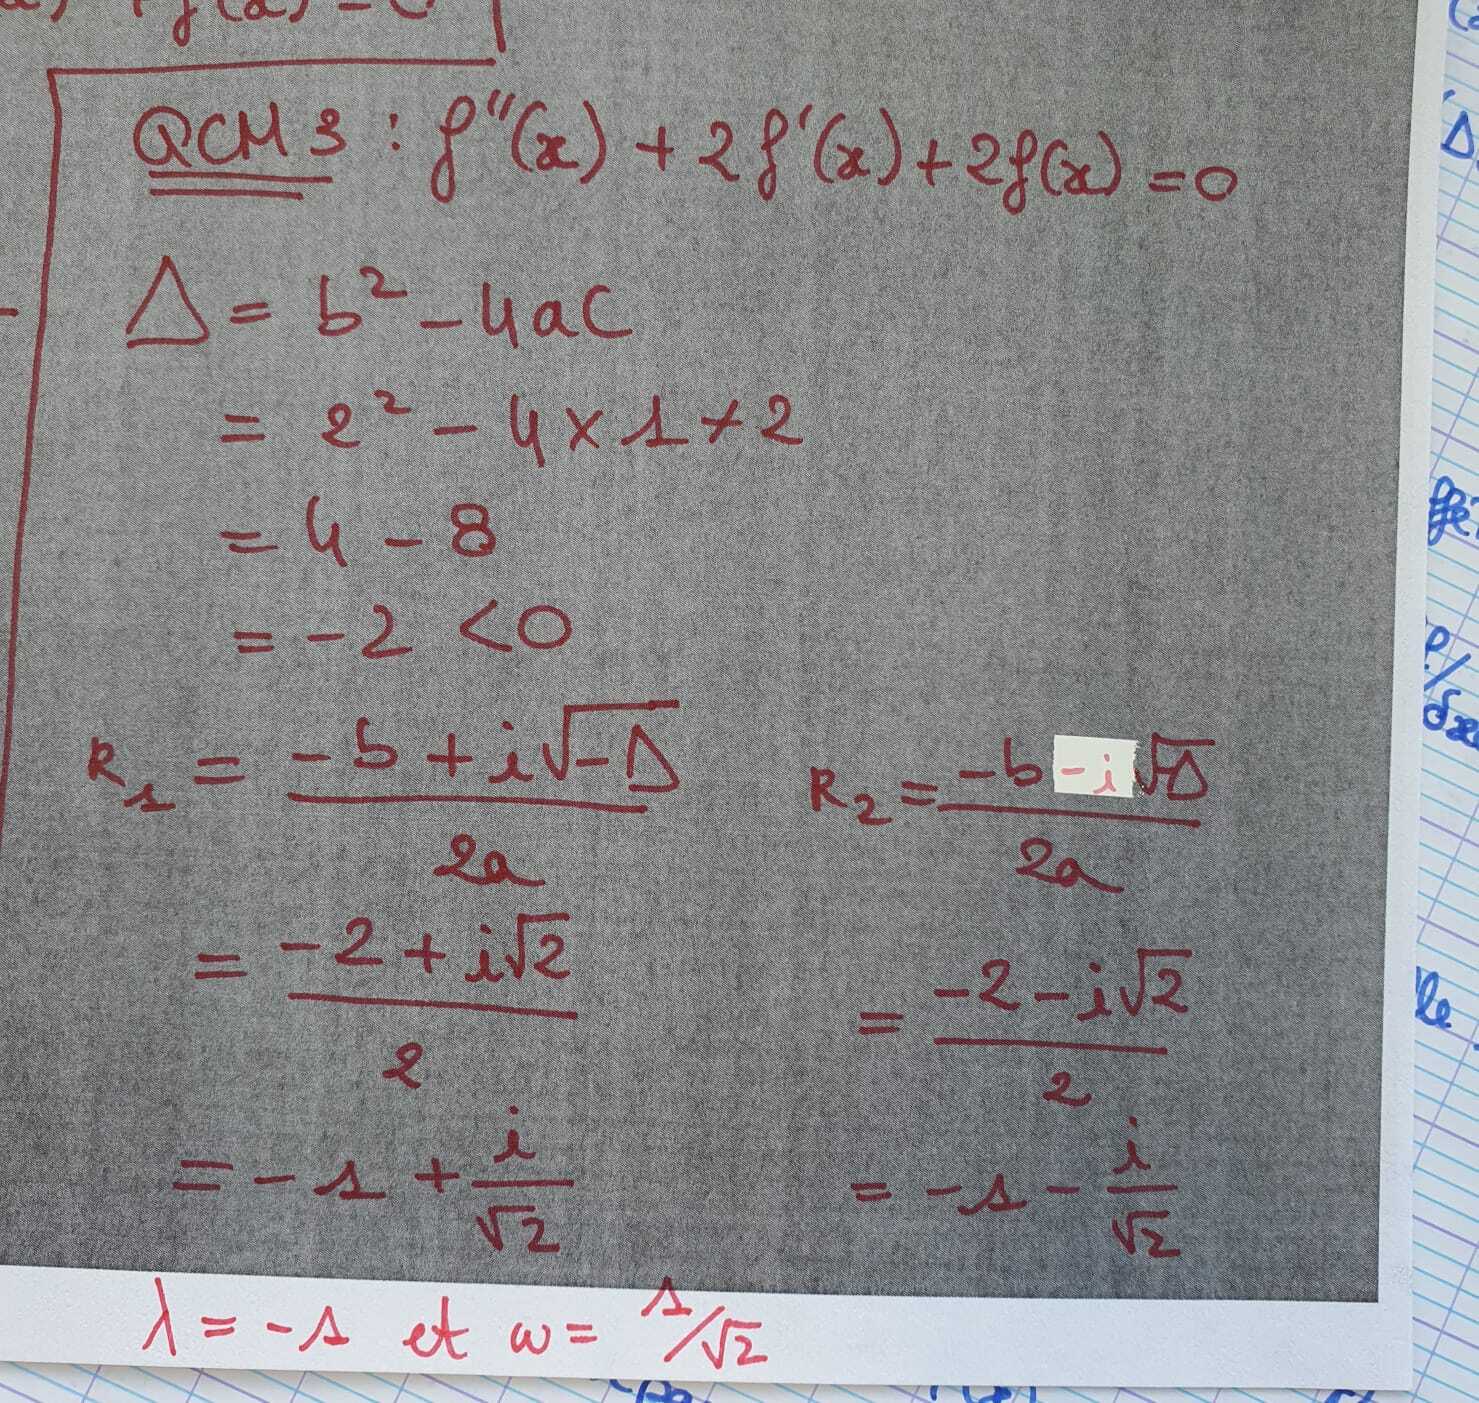 QCM 3 : f''(x) + 2f'(x) + 2f(x) = 0
Δ = b² - 4ac
= 2² - 4 × 1 × 2
= 4 - 8
= -2 < 0
R₁ = (-b + i√-Δ) / 2a
R₂ = (-b - i√-Δ) / 2a
= (-2 + i√2) / 2
= (-2 - i√2) / 2
= -1 + i/√2
= -1 - i/√2
λ = -1 et ω = 1/√2